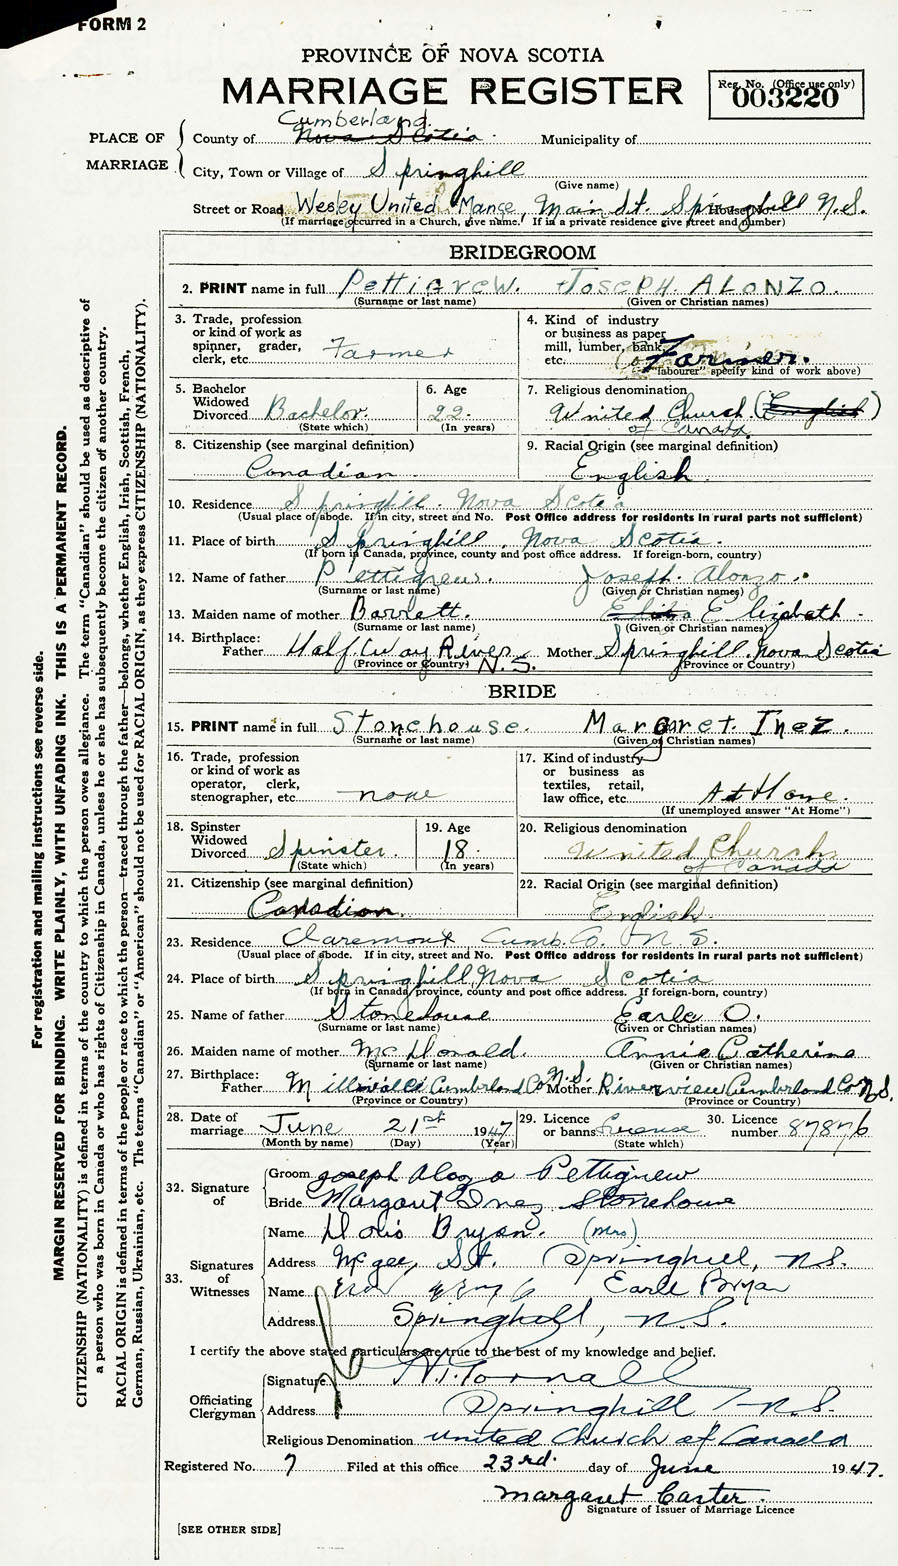 FORM 2
PROVINCE OF NOVA SCOTIA
MARRIAGE REGISTER
Reg. No. (Office use only)
003220
PLACE OF MARRIAGE
Cumberland.
County of Nova Scotia. Municipality of
City, Town or Village of Springhill
(Give name)
Street or Road Wesley United Manse, Main St. Springhill N.S. House No.
(If marriage occurred in a Church, give name. If in a private residence give street and number)
BRIDEGROOM
2. PRINT name in full Pettigrew. JOSEPH. ALONZO.
(Surname or last name) (Given or Christian names)
3. Trade, profession or kind of work as spinner, grader, clerk, etc. Farmer
4. Kind of industry or business as paper mill, lumber, bank, etc. Farmer.
"labourer" specify kind of work above)
5. Bachelor Widowed Divorced Bachelor. (State which)
6. Age 22. (In years)
7. Religious denomination United Church. (English) of Canada.
8. Citizenship (see marginal definition) Canadian
9. Racial Origin (see marginal definition) English.
10. Residence Springhill. Nova Scotia
(Usual place of abode. If in city, street and No. Post Office address for residents in rural parts not sufficient)
11. Place of birth Springhill, Nova Scotia.
(If born in Canada, province, county and post office address. If foreign-born, country)
12. Name of father Pettigrew. Joseph. Alonzo.
(Surname or last name) (Given or Christian names)
13. Maiden name of mother Barrett. Elizabeth.
(Surname or last name) (Given or Christian names)
14. Birthplace: Father Half Way River N.S. Mother Springhill. Nova Scotia
(Province or Country) (Province or Country)
BRIDE
15. PRINT name in full Stonehouse. Margaret. Inez.
(Surname or last name) (Given or Christian names)
16. Trade, profession or kind of work as operator, clerk, stenographer, etc. none
17. Kind of industry or business as textiles, retail, law office, etc. At Home.
(If unemployed answer "At Home")
18. Spinster Widowed Divorced Spinster. (State which)
19. Age 18. (In years)
20. Religious denomination United Church of Canada
21. Citizenship (see marginal definition) Canadian.
22. Racial Origin (see marginal definition) English.
23. Residence Claremont, Cumb. Co. N.S.
(Usual place of abode. If in city, street and No. Post Office address for residents in rural parts not sufficient)
24. Place of birth Springhill, Nova Scotia
(If born in Canada, province, county and post office address. If foreign-born, country)
25. Name of father Stonehouse Earle O.
(Surname or last name) (Given or Christian names)
26. Maiden name of mother McDonald. Annie Catherine
(Surname or last name) (Given or Christian names)
27. Birthplace: Father Cumberland Co N.S. Mother Riverview Cumberland Co N.S.
(Province or Country) (Province or Country)
28. Date of marriage June 21st 1947
(Month by name) (Day) (Year)
29. Licence or banns License (State which)
30. Licence number 87876
32. Signature of
Groom Joseph Alonzo Pettigrew
Bride Margaret Inez Stonehouse
33. Signatures of Witnesses
Name Doris Bryan. (Mrs)
Address McGee St. Springhill, N.S.
Name Earle Bryan
Address Springhill, N.S.
I certify the above stated particulars are true to the best of my knowledge and belief.
Officiating Clergyman
Signature
Address Springhill, N.S.
Religious Denomination United Church of Canada
Registered No. 7 Filed at this office 23rd. day of June 1947.
Margaret Carter.
Signature of Issuer of Marriage Licence
[SEE OTHER SIDE]
For registration and mailing instructions see reverse side.
MARGIN RESERVED FOR BINDING. WRITE PLAINLY, WITH UNFADING INK. THIS IS A PERMANENT RECORD.
CITIZENSHIP (NATIONALITY) is defined in terms of the country to which the person owes allegiance. The term "Canadian" should be used as descriptive of
a person who was born in Canada or who has rights of Citizenship in Canada, unless he or she has subsequently become the citizen of another country.
RACIAL ORIGIN is defined in terms of the people or race to which the person—traced through the father—belongs, whether English, Irish, Scottish, French,
German, Russian, Ukrainian, etc. The terms "Canadian" or "American" should not be used for RACIAL ORIGIN, as they express CITIZENSHIP (NATIONALITY).